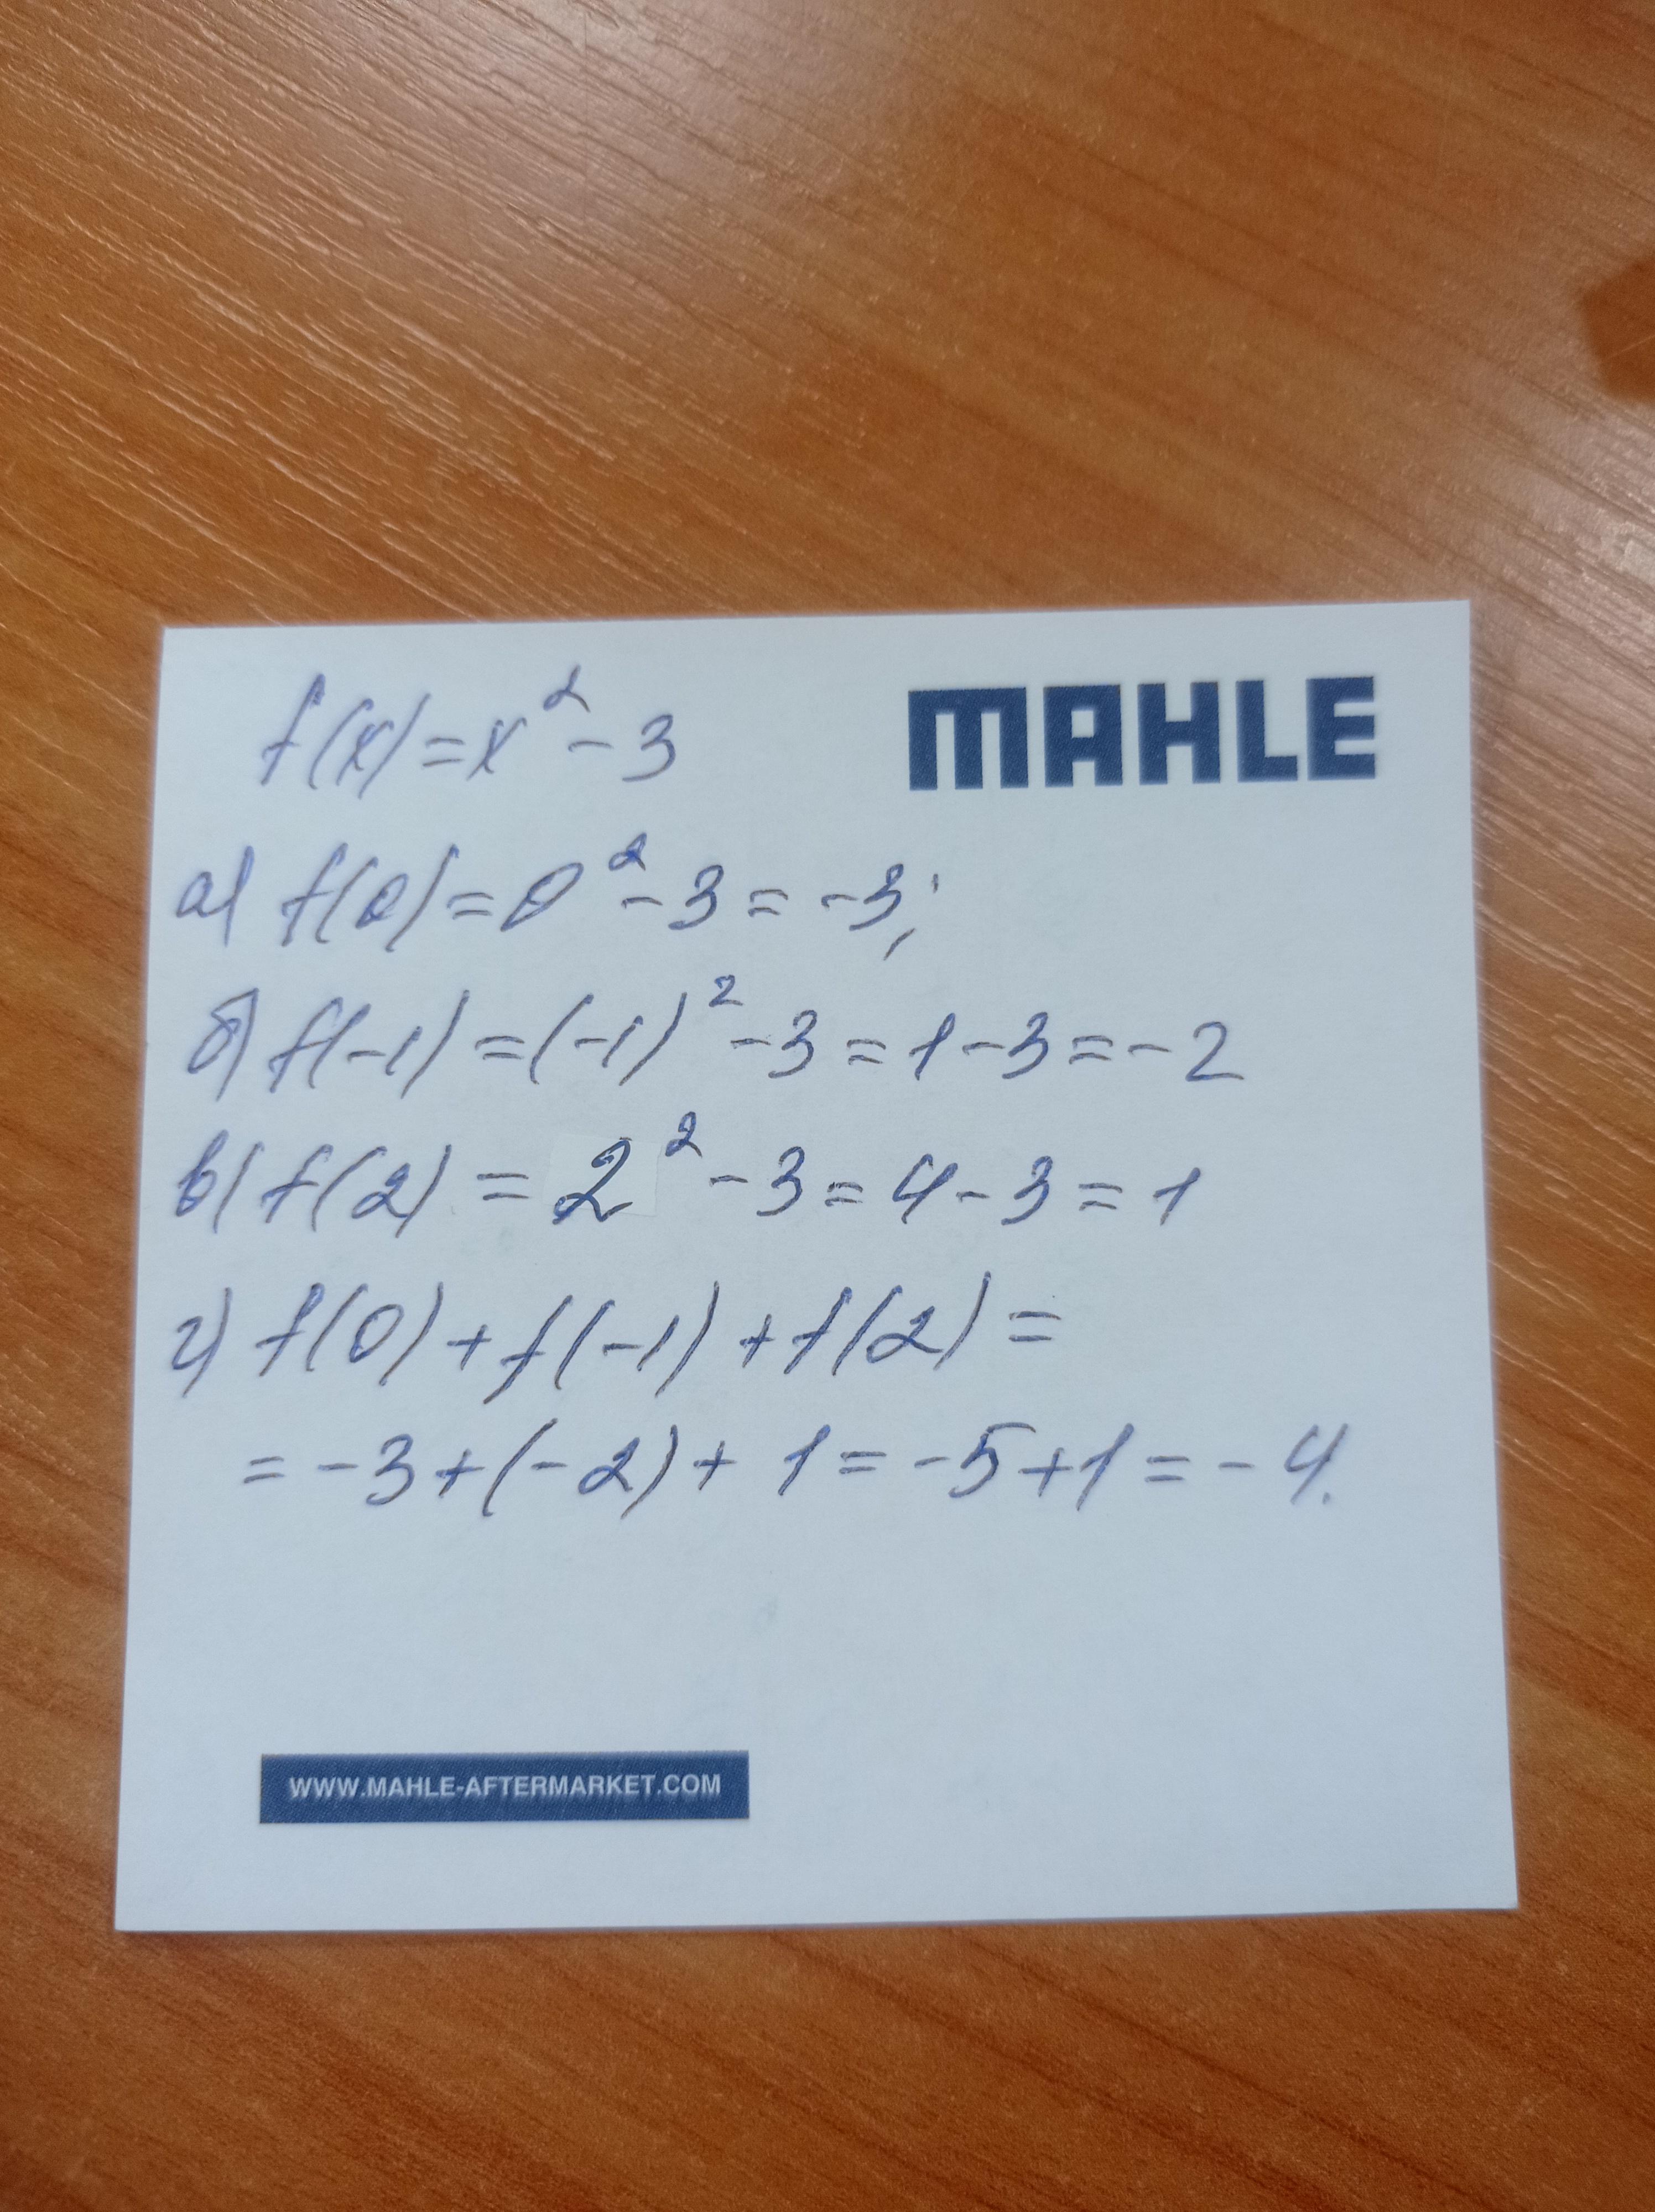 f(x)=x²-3
MAHLE
а) f(0)=0²-3=-3;
б) f(-1)=(-1)²-3=1-3=-2
в) f(2)=2²-3=4-3=1
г) f(0)+f(-1)+f(2)=
=-3+(-2)+1=-5+1=-4.
WWW.MAHLE-AFTERMARKET.COM